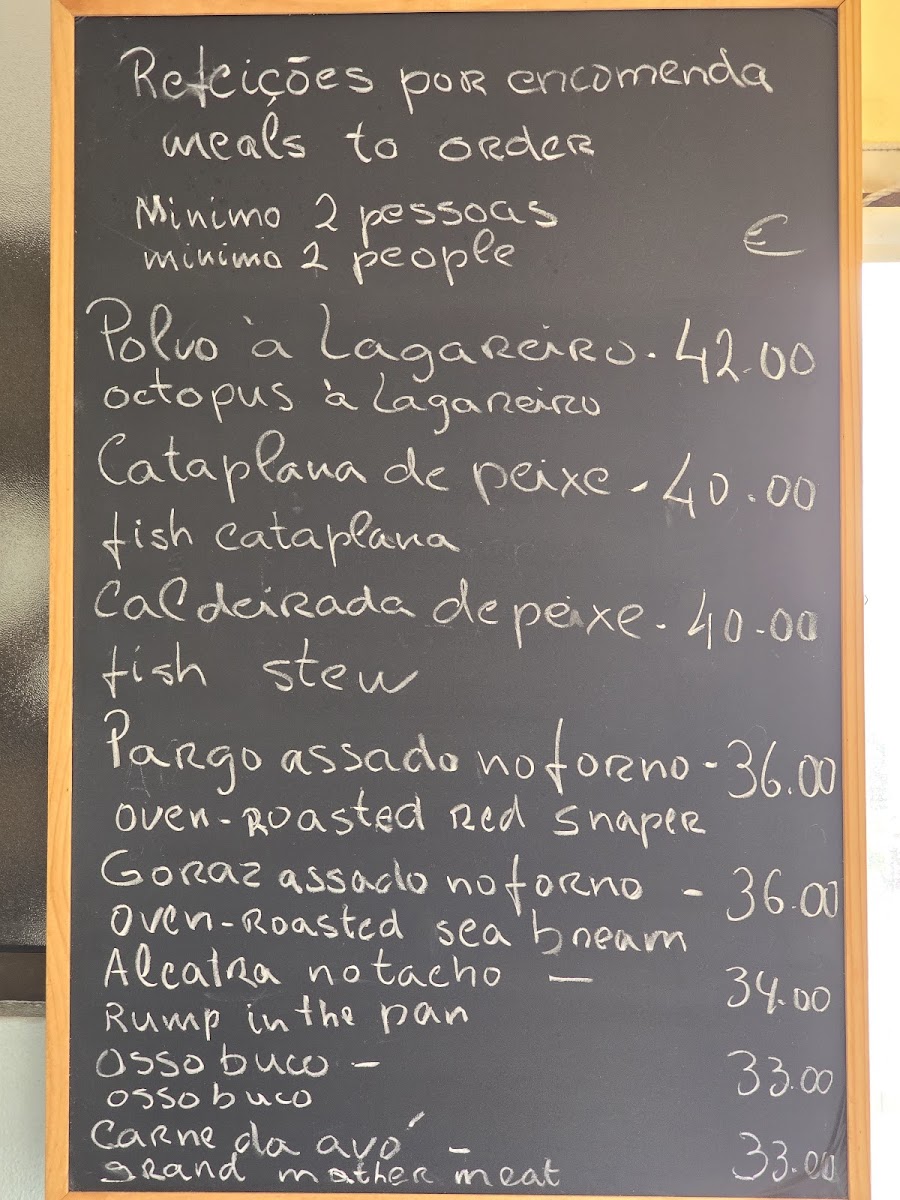 Refeições por encomenda
meals to order
Minimo 2 pessoas
minimo 2 people
€
Polvo à Lagareiro. 42.00
octopus à Lagareiro
Cataplana de peixe - 40.00
fish cataplana
Caldeirada de peixe - 40.00
fish stew
Pargo assado no forno - 36.00
oven-roasted red snaper
Goraz assado no forno - 36.00
oven-roasted sea bream
Alcatra no tacho - 34.00
Rump in the pan
Osso buco - 33.00
osso buco
Carne da avó - 33.00
grand mother meat